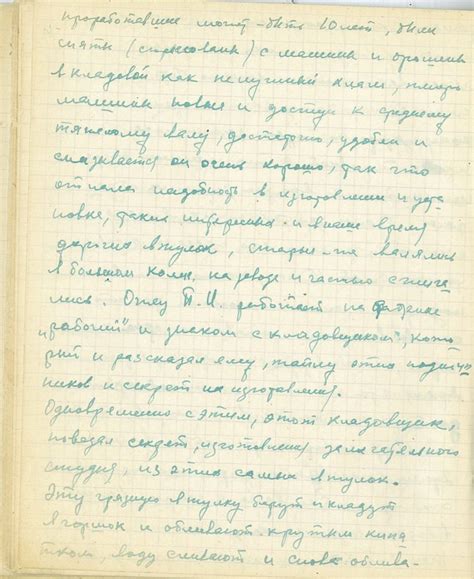 проработавшие может-быть 10 лет, были
сняты (спрессованы) с машины и брошены
в кладовой как ненужный хлам,
машины новые и доступ к среднему
тяжелому валу, достаточно, удобен и
смазывается он очень хорошо, так что
отпала надобность в изготовлении и уста
новке, таких интересных и в наше время
дорогих втулок, старые-же валялись
в большом колич. на заводе и частью сжига
лись. Отец П.И. работает на фабрике
"рабочий" и знаком с кладовщиком, кото
рый и рассказал ему, тайну этих подшип
ников и секрет их изготовления.
Одновременно с этим, этот кладовщик,
поведал секрет, изготовления замечательного
студня, из этих самых втулок.
Эту грязную втулку берут и кладут
в горшок и обливают крутым кипя
тком, воду сливают и снова облива-